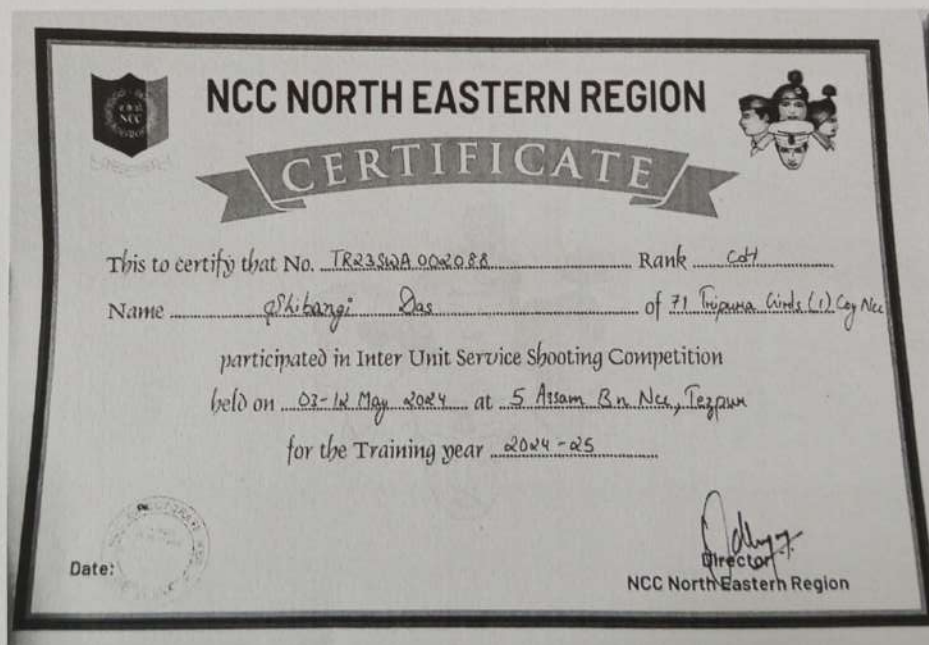 NCC NORTH EASTERN REGION
CERTIFICATE
This to certify that No. TR23SWA002088 Rank Cdt
Name Shibangi Das of 71 Tripura Girls (I) Coy Ncc
participated in Inter Unit Service Shooting Competition
held on 03-12 May 2024 at 5 Assam Bn Ncc, Tezpur
for the Training year 2024-25
Date:
Director
NCC North Eastern Region